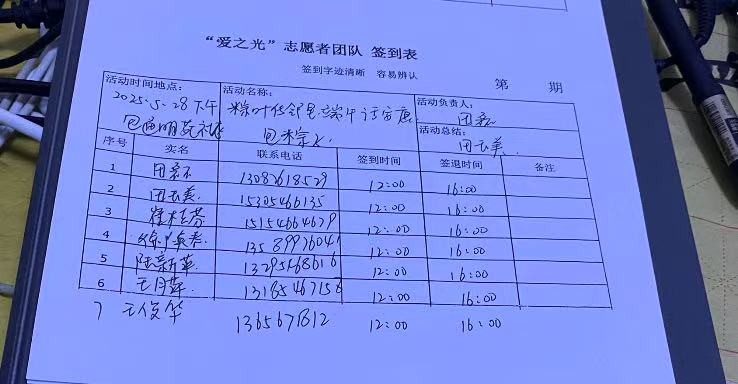 “爱之光”志愿者团队 签到表
签到字迹清晰 容易辨认
第 期
活动时间地点: 活动名称: 活动负责人:
2025.5.28下午 粽叶传邻里端午话安康
包粽子
活动总结:
田玉美
序号 实名 联系电话 签到时间 签退时间 备注
1 12:00 16:00
2 田玉美 15305466135 12:00 16:00
3 15154664679 12:00 16:00
4 13589976041 12:00 16:00
5 陆新华 12:00 16:00
6 王月萍 13185467156 12:00 16:00
7 王俊华 1365671812 12:00 16:00